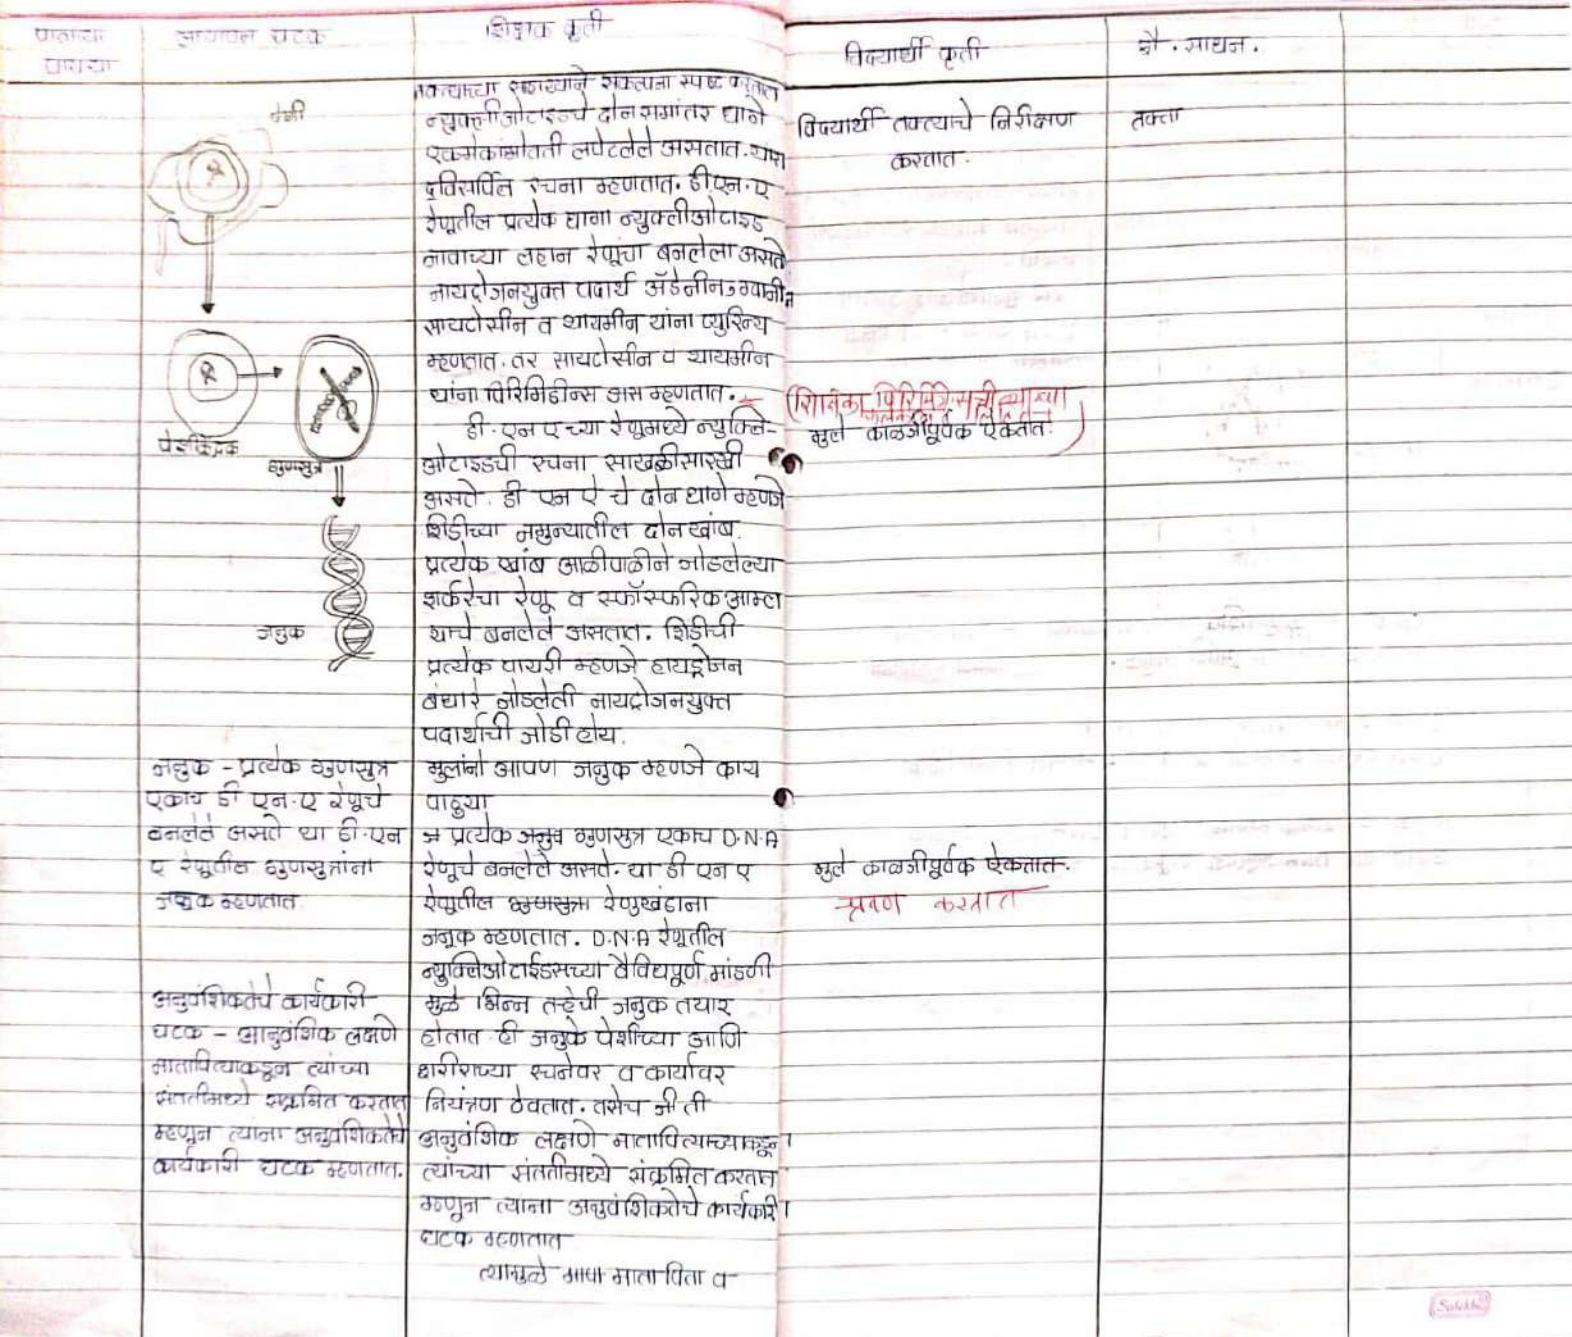 पाठाच्या
पायऱ्या
आशयातील घटक
शिक्षक कृती
विद्यार्थी कृती
शै. साधन.
पेशी
पेशीकेंद्रक
गुणसूत्र
जनुक
जनुक - प्रत्येक गुणसूत्र
एकाच डी एन.ए रेणूचे
बनलेले असते या डी.एन
ए रेणूतील गुणसूत्रांना
जनुक म्हणतात
अनुवंशिकतेचे कार्यकारी
घटक - आनुवंशिक लक्षणे
मातापित्याकडून त्यांच्या
संततीमध्ये संक्रमित करतात
म्हणून त्यांना अनुवंशिकतेचे
कार्यकारी घटक म्हणतात.
तक्त्याच्या सहाय्याने संकल्पना स्पष्ट करतात
न्युक्लीओटाइडचे दोन समांतर धागे
एकमेकांभोवती लपेटलेले असतात. याला
द्विसर्पिल रचना म्हणतात. डी.एन.ए
रेणूतील प्रत्येक धागा न्युक्लीओटाइड
नावाच्या लहान रेणूंचा बनलेला असते
नायट्रोजनयुक्त पदार्थ अ‍ॅडेनीन, ग्वानीन
सायटोसीन व थायमीन यांना प्युरिन्य
म्हणतात. तर सायटोसीन व थायमीन
यांना पिरिमिडीन्स अस म्हणतात.
डी.एन ए च्या रेणूमध्ये न्युक्लि-
ओटाइडची रचना साखळीसारखी
असते. डी एन ऐ चे दोन धागे म्हणजे
शिडीच्या नमुन्यातील दोन खांब.
प्रत्येक खांब आळीपाळीने जोडलेल्या
शर्करेचा रेणू व स्फॉस्फरिक आम्ल
याचे बनलेले असतात. शिडीची
प्रत्येक पायरी म्हणजे हायड्रोजन
बंधारे जोडलेली नायट्रोजनयुक्त
पदार्थाची जोडी होय.
मुलांनो आपण जनुक म्हणजे काय
पाहुया
प्रत्येक गुणसूत्र एकाच D.N.A
रेणूचे बनलेले असते. या डी एन ए
रेणूतील रेणुखंडाना
जनूक म्हणतात. D.N.A रेणूतील
न्युक्लिओटाईडसच्या वैविध्यपूर्ण मांडणी
मुळे भिन्न तऱ्हेची जनुक तयार
होतात ही जनुके पेशीच्या आणि
शरीराच्या रचनेवर व कार्यावर
नियंत्रण ठेवतात. तसेच ती
अनुवंशिक लक्षणे मातापित्याच्याकडून
त्यांच्या संततीमध्ये संक्रमित करतात
म्हणून त्याना अनुवंशिकतेचे कार्यकारी
घटक म्हणतात
त्यामुळे माता पिता व
विद्यार्थी तक्त्याचे निरीक्षण
करतात.
मुले काळजीपूर्वक ऐकतात.
मुले काळजीपूर्वक ऐकतात.
श्रवण करतात
तक्ता